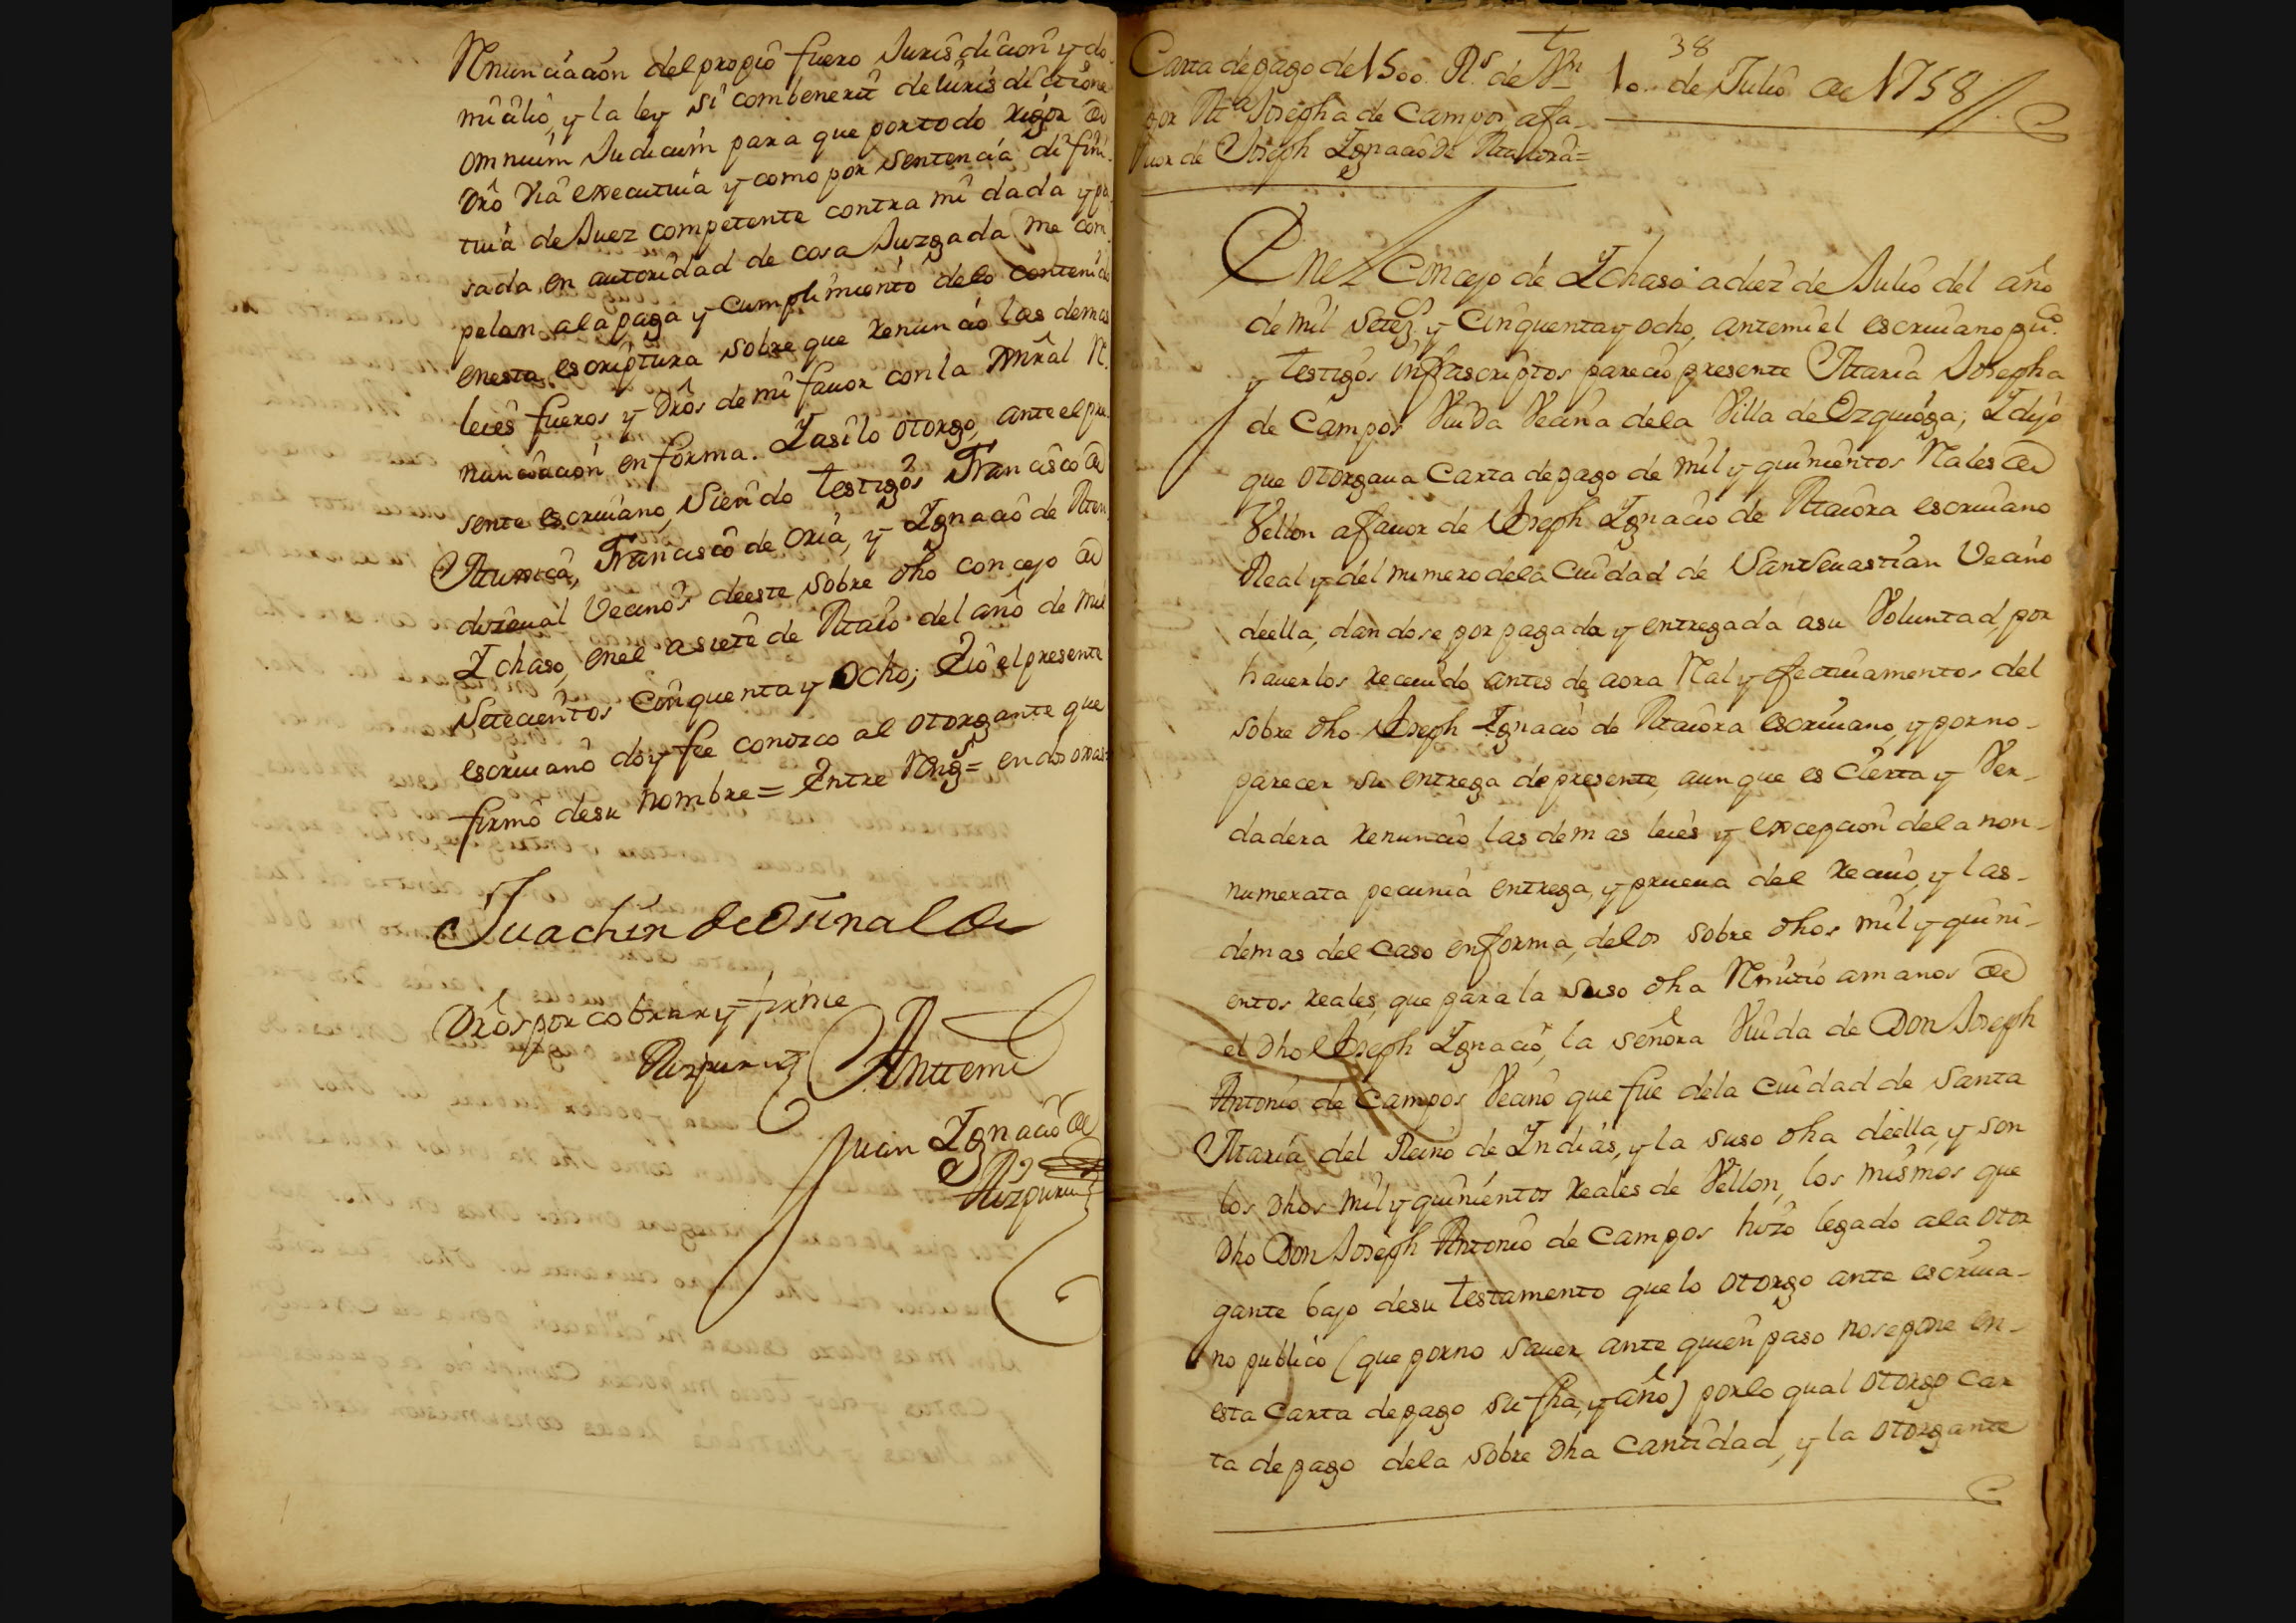 Rnunciacion del propio fuero Jurisdicion y do
micilio, y la ley si combenerit de jurisdictione
omnium Judicum para que por todo rigor de
dro via executiva y como por sentencia difini
tiva de Juez competente contra mi dada y pa
sada en autoridad de cosa Juzgada me com
pelan a la paga y cumplimiento de lo contenido
en esta escriptura sobre que renuncio las demas
leies fueros y dros de mi favor con la gnral R.
nunciacion en forma. Y asi lo otorgo, ante el pre
sente escrivano, Siendo testigos Francisco de
Francisco de Oria, y Ignacio de
Vecinos de este sobre dho concejo de
Ychaso, en el a siete de Maio del año de mil
Setecientos cinquenta y ocho; Eio el presente
escrivano doy fee conozco al otorgante que
firmó de su nombre = Entre Rengs = en dos
Juachin de Osinalde
Dros por cobrar y firme
Aizpuru
Antemi
Juan Ignacio de
Aizpuru
Carta de pago de 1500. Rs. de Vn
por Ma Josepha de Campos a fa
vor de Joseph Ygnacio de Maiora =
38
10. de Julio de 1758
En el Concejo de Ychaso a diez de Julio del año
de mil setez. y cinquenta y ocho, antemi el escrivano puco.
y testigos infrascriptos parecio presente Maria Josepha
de Campos Viuda Vecina de la Villa de Ezquioga; Y dijo
que otorgava Carta de pago de mil y quinientos Rales de
Vellon a favor de Joseph Ygnacio de Maiora escrivano
Real y del numero de la Ciudad de San Sevastian Vecino
de ella, dandose por pagada y entregada a su Voluntad, por
haverlos recivido antes de aora Ral y efectivamentes del
sobre dho Joseph Ygnacio de Maiora escrivano, y por no
parecer su entrega de presente, aunque es Cierta y Ver-
dadera renuncio las demas leies y excepcion de la non-
numerata pecunia entrega, y prueva del recivo, y las-
demas del caso en forma, de los sobre dhos mil y quini-
entos reales, que para la suso dha Rmitio a manos de
el dho Joseph Ygnacio, la señora Viuda de Don Joseph
Antonio de Campos Vecino que fue de la ciudad de Santa
Maria del Reino de Indias, y la suso dha de ella, y son
los dhos mil y quinientos reales de Vellon, los mismos que
dho Don Joseph Antonio de Campos hizo legado a la otor
gante bajo de su testamento que lo otorgo ante escriva-
no publico (que por no saver ante quien paso no se pone en-
esta Carta de pago su fha, y año) por lo qual otorgo car
ta de pago de la sobre dha Cantidad, y la otorgante